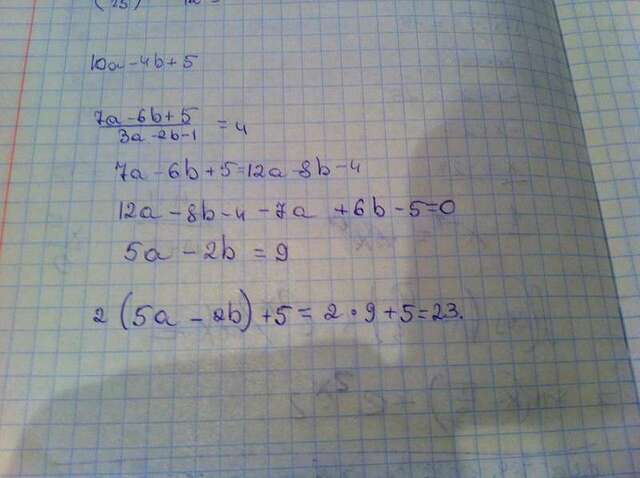 10a - 4b + 5
7a - 6b + 5
3a - 2b - 1
= 4
7a - 6b + 5 = 12a - 8b - 4
12a - 8b - 4 - 7a + 6b - 5 = 0
5a - 2b = 9
2 (5a - 2b) + 5 = 2 · 9 + 5 = 23.